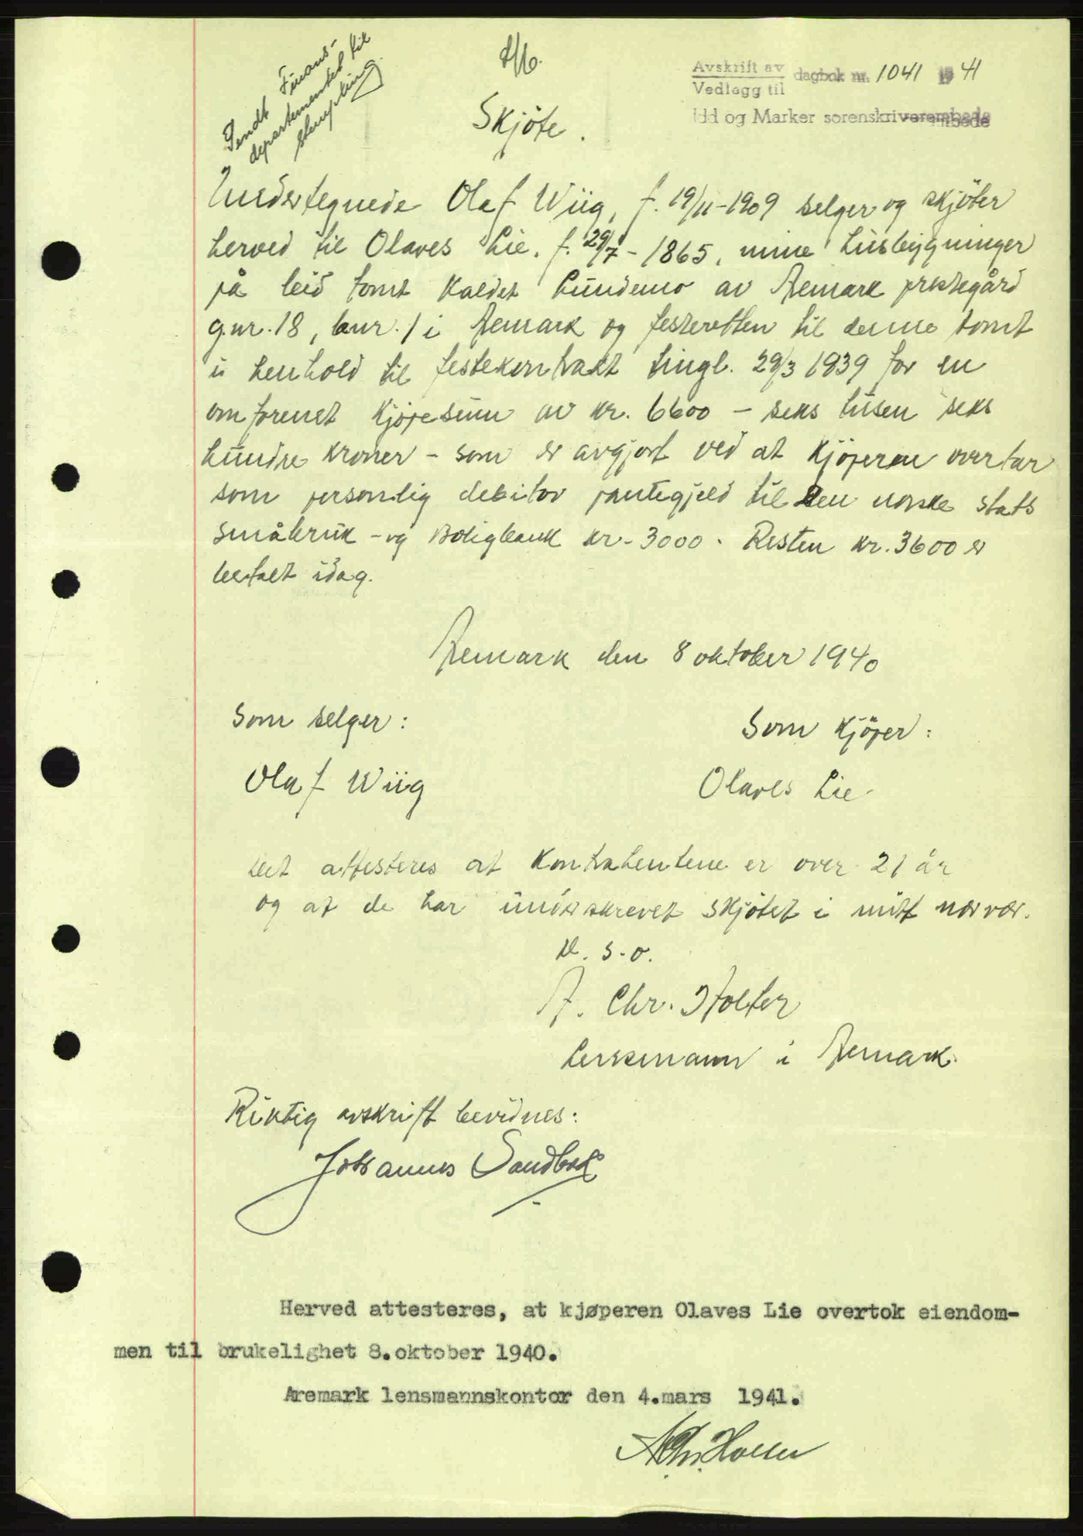 Sendt Finans-
departementet til
stempling
Avskrift av
Vedlegg til
dagbok nr. 1041 1941
Idd og Marker sorenskriverembede
Skjøte.
Undertegnede Olaf Wiig, f. 19/11-1909 selger og skjøter
herved til Olaves Lie. f. 29/7-1865, mine husbygninger
på leid tomt kaldet Lundemo av Aremark prestegård
gnr. 18, bnr. 1 i Aremark og festeretten til denne tomt
i henhold til festekontrakt tingl. 29/3 1939 for en
omforenet kjøpesum av kr. 6600 - seks tusen seks
hundre kroner - som er avgjort ved at kjøperen overtar
som personlig debitor pantegjeld til Den norske stats
småbruk - og Boligbank kr. 3000. Resten kr. 3600 er
betalt idag.
Aremark den 8 oktober 1940
Som selger:
Som kjøper:
Olaf Wiig
Olaves Lie
Det attesteres at kontrahentene er over 21 år
og at de har underskrevet skjøtet i mitt nærvær.
D. s. o.
A. Chr. Holter
Lensmann i Aremark.
Riktig avskrift bevidnes:
Johannes Sandbæk
Herved attesteres, at kjøperen Olaves Lie overtok eiendom-
men til brukelighet 8.oktober 1940.
Aremark lensmannskontor den 4.mars 1941.
A Chr. Holter